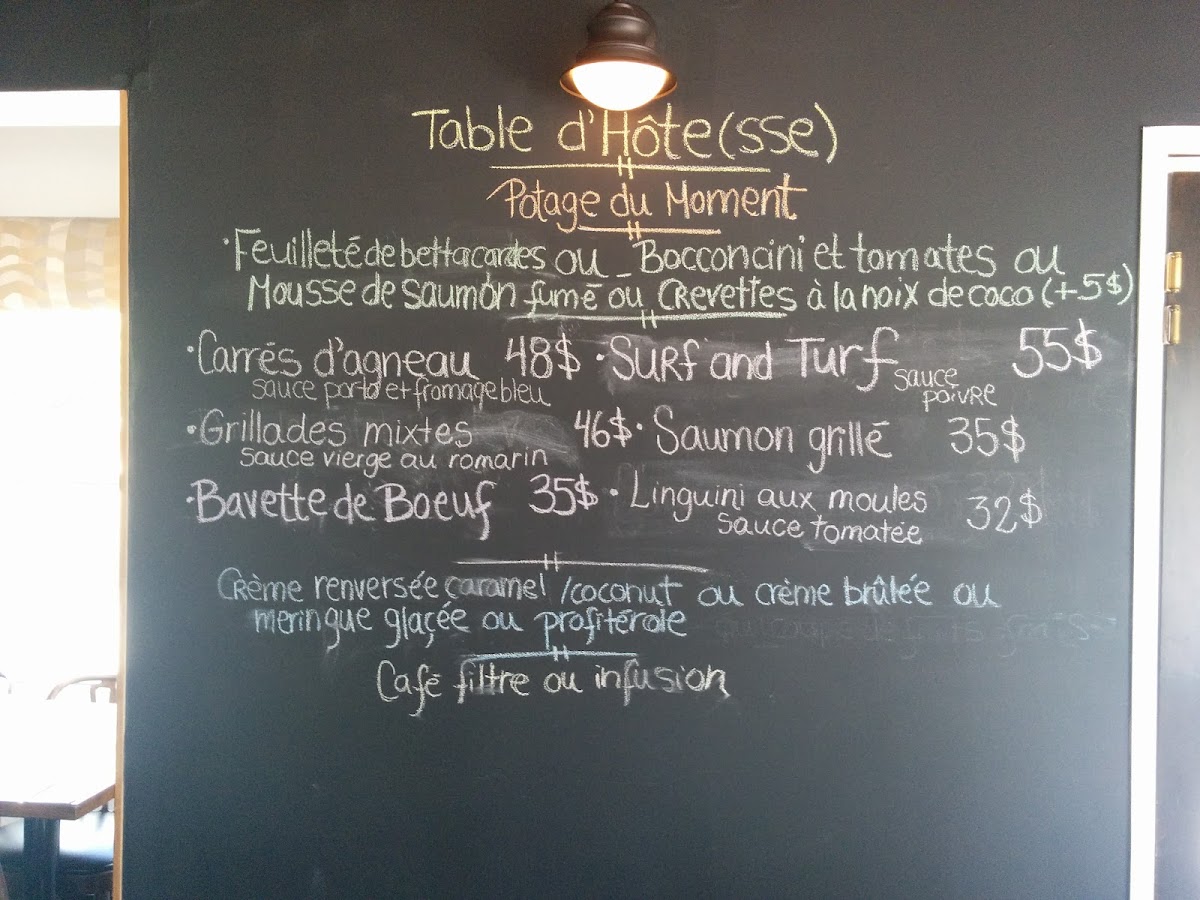 Table d'Hôte(sse)
Potage du Moment
·Feuilleté de bettacardes ou - Bocconcini et tomates ou
Mousse de saumon fumé ou Crevettes à la noix de coco (+5$)
·Carrés d'agneau 48$ ·Surf and Turf sauce poivre 55$
sauce porto et fromage bleu
·Grillades mixtes 46$ ·Saumon grillé 35$
sauce vierge au romarin
·Bavette de Boeuf 35$ ·Linguini aux moules 32$
sauce tomatée
Crème renversée caramel /coconut ou crème brûlée ou
meringue glaçée ou profitérole
Café filtre ou infusion